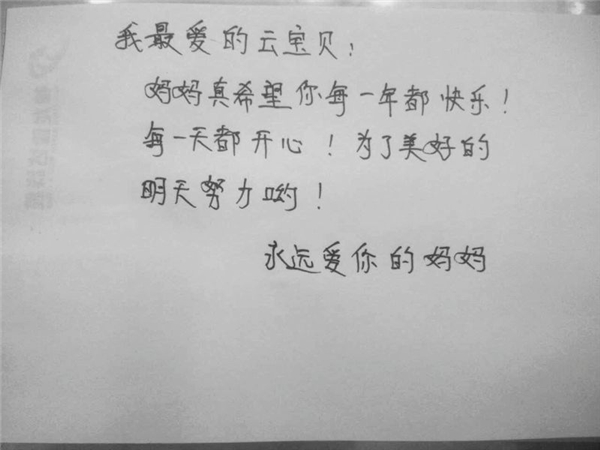 我最爱的云宝贝：
妈妈真希望你每一年都快乐！
每一天都开心！为了美好的
明天努力哟！
永远爱你的妈妈